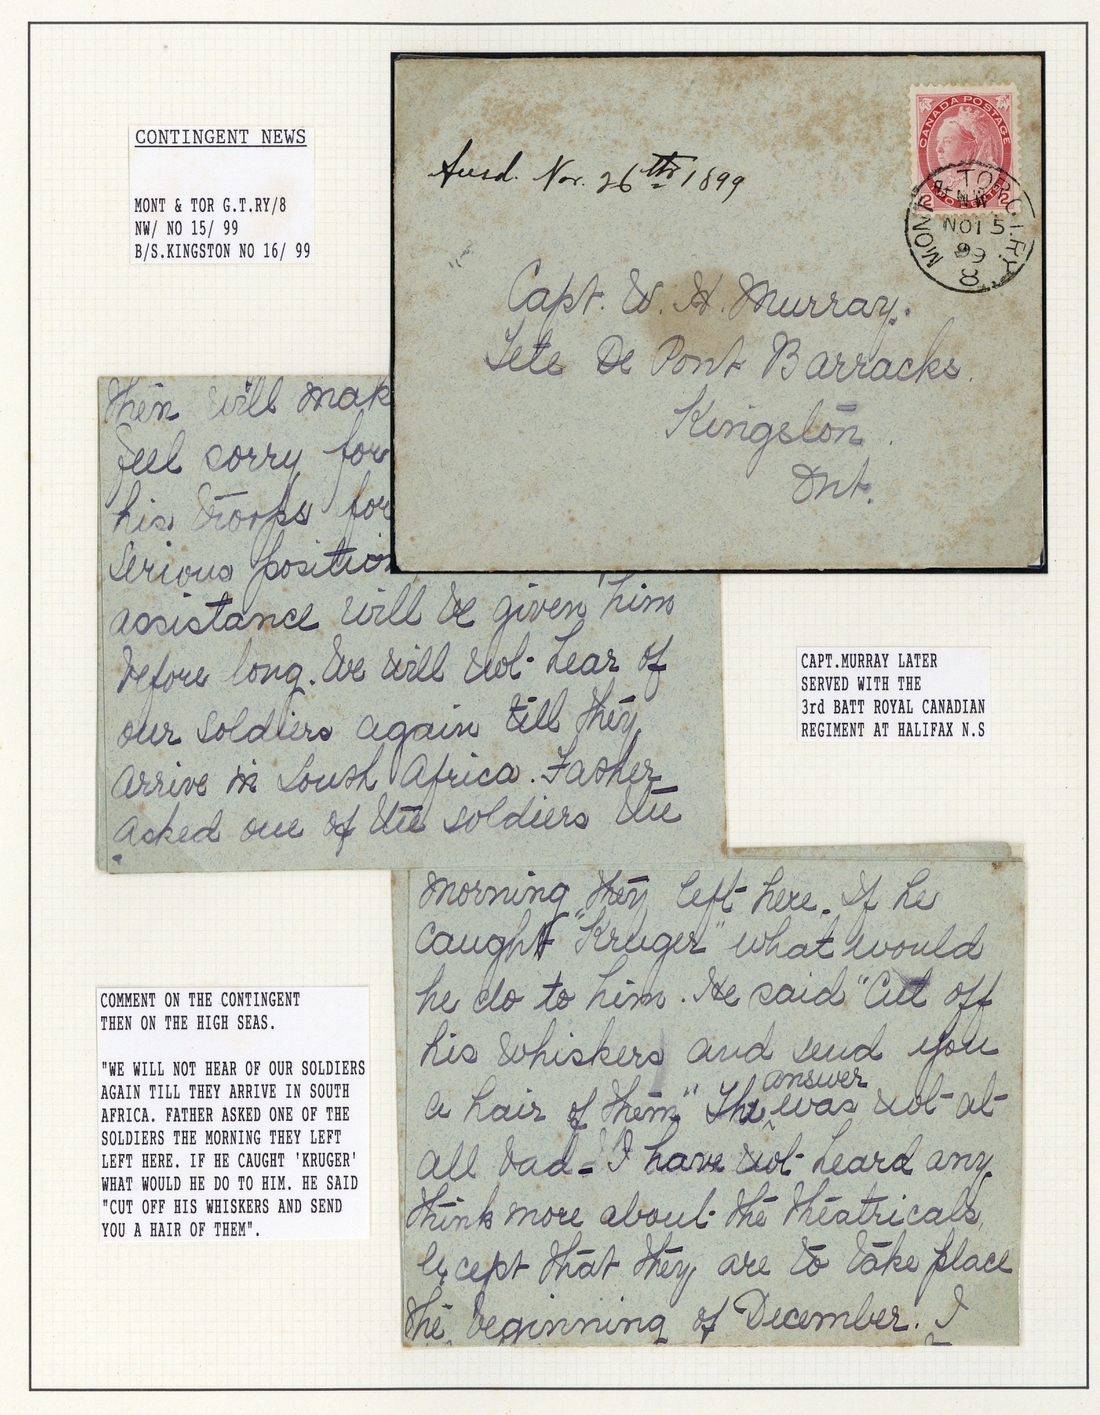 CONTINGENT NEWS
MONT & TOR G.T.RY/8
NW/ NO 15/ 99
B/S.KINGSTON NO 16/ 99
CANADA POSTAGE
2 2
MONT & TOR G.T.RY
NO 15
99
8
Ansd. Nov. 26th 1899
Capt. W. H. Murray.
Tete De Pont Barracks.
Kingston.
Ont.
then will mak
feel sorry for
his troops for
serious position
assistance will be given him
before long. We will not hear of
our soldiers again till they
arrive in South Africa. Father
asked one of the soldiers the
CAPT.MURRAY LATER
SERVED WITH THE
3rd BATT ROYAL CANADIAN
REGIMENT AT HALIFAX N.S
morning they left here. If he
caught "Kruger" what would
he do to him. He said "Cut off
his whiskers and send you
a hair of them" The answer was not at
all bad - I have not heard any
think more about the theatricals,
except that they are to take place
the beginning of December. I
COMMENT ON THE CONTINGENT
THEN ON THE HIGH SEAS.
"WE WILL NOT HEAR OF OUR SOLDIERS
AGAIN TILL THEY ARRIVE IN SOUTH
AFRICA. FATHER ASKED ONE OF THE
SOLDIERS THE MORNING THEY LEFT
LEFT HERE. IF HE CAUGHT 'KRUGER'
WHAT WOULD HE DO TO HIM. HE SAID
"CUT OFF HIS WHISKERS AND SEND
YOU A HAIR OF THEM".